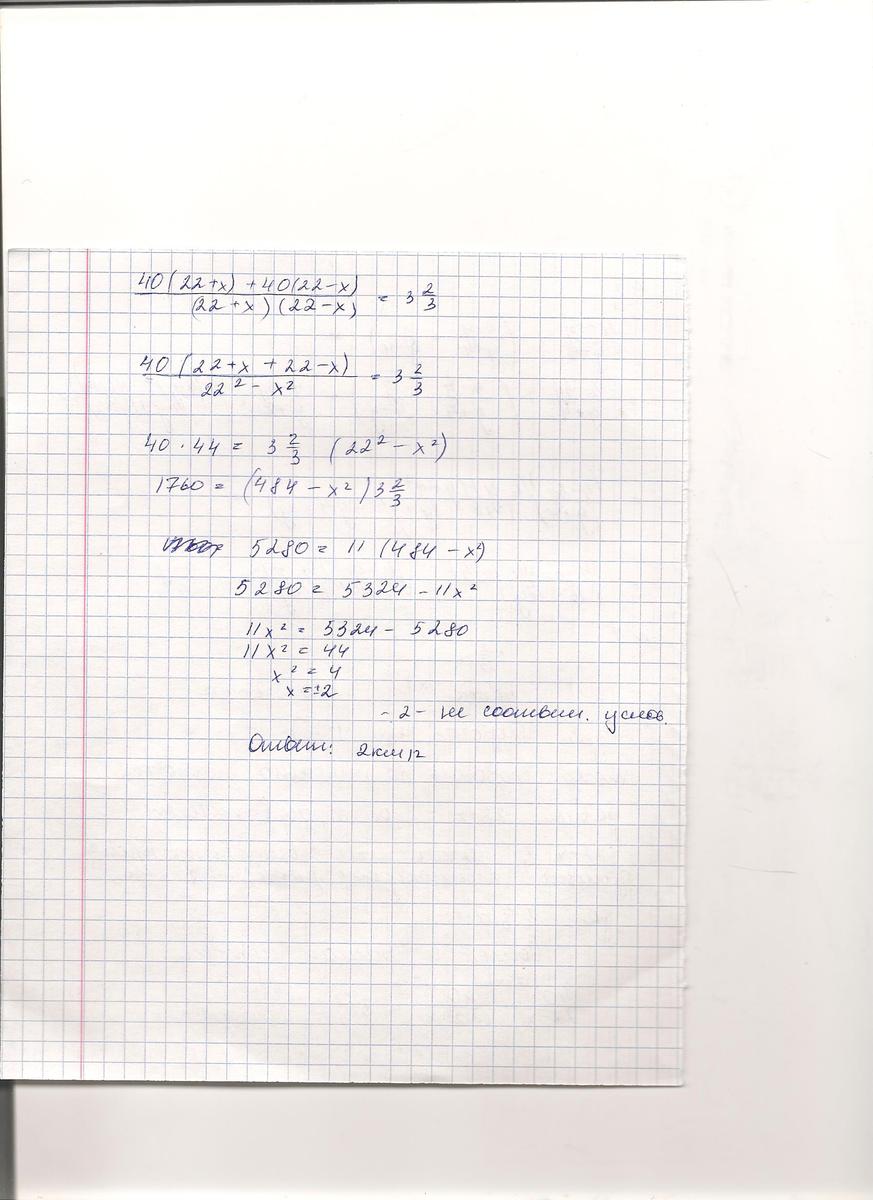 40(22+x) + 40(22-x) / (22+x)(22-x) = 3 2/3
40(22+x + 22-x) / 22² - x² = 3 2/3
40 · 44 = 3 2/3 (22² - x²)
1760 = (484 - x²) 3 2/3
5280 = 11 (484 - x²)
5280 = 5324 - 11x²
11x² = 5324 - 5280
11x² = 44
x² = 4
x = ±2
-2 - не соответ. услов.
Ответ: 2 км/ч